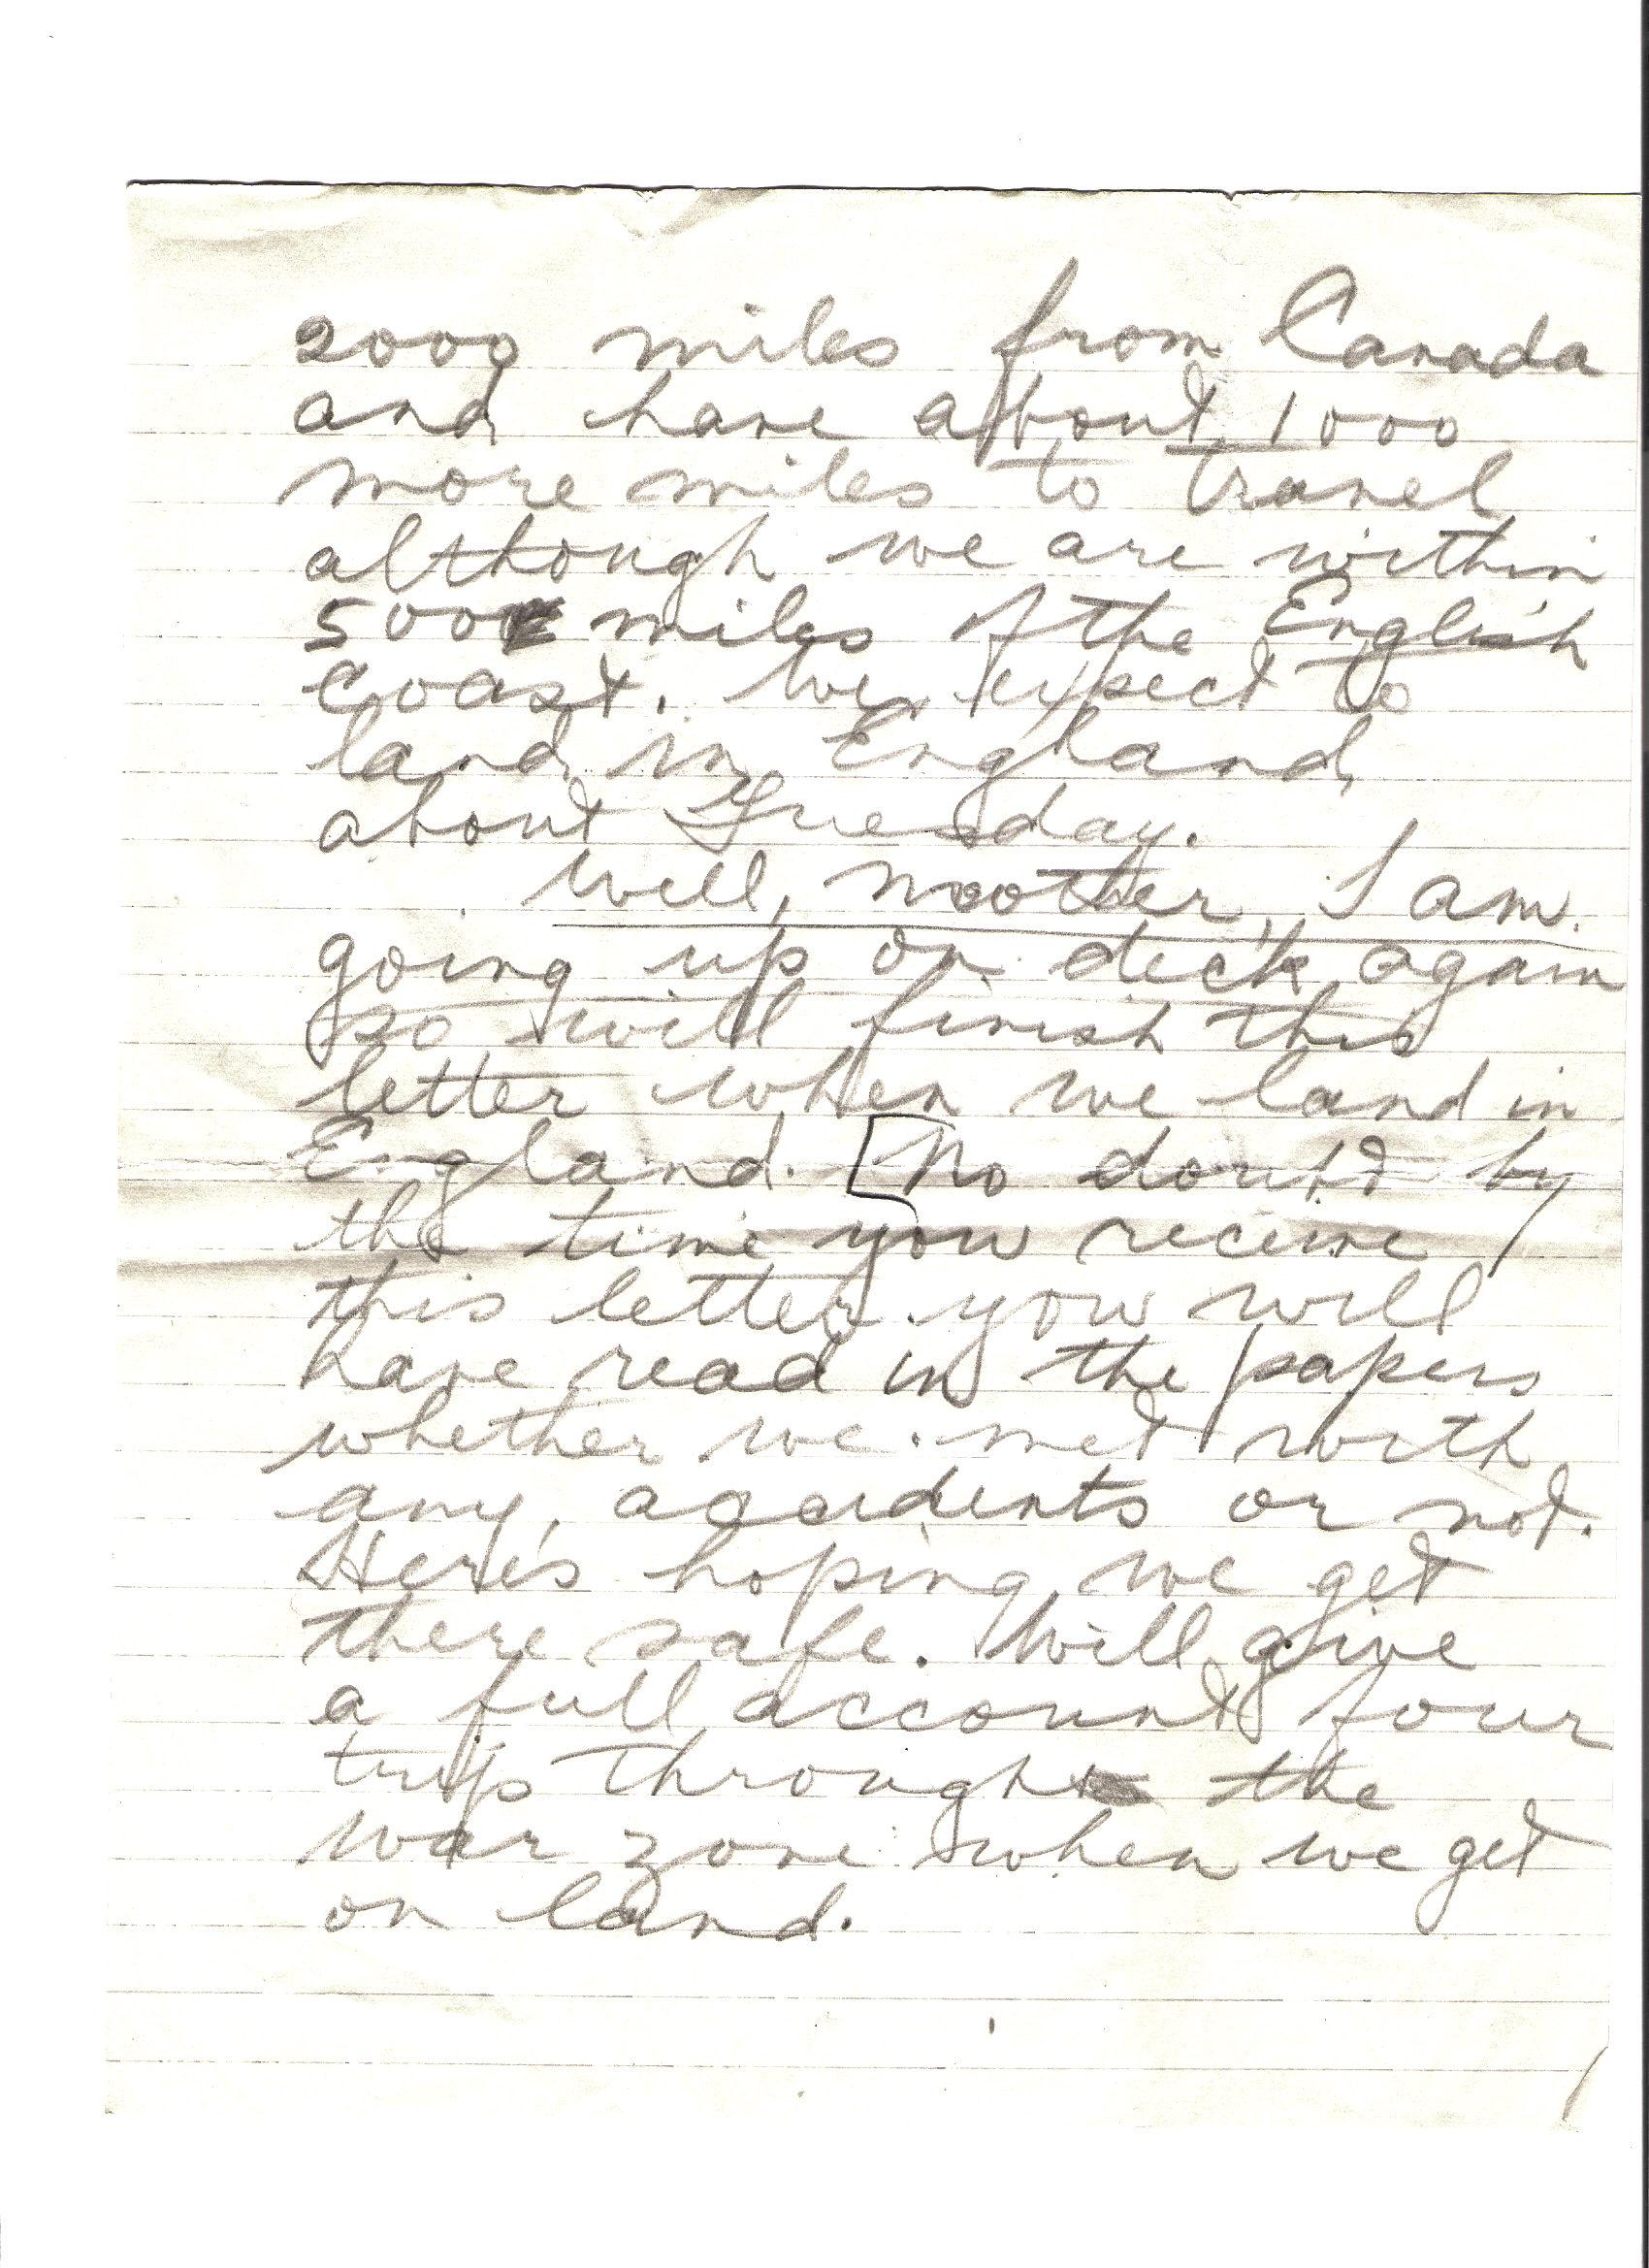 2000 miles from Canada
and have about 1000
more miles to travel
although we are within
500 miles of the English
Coast. We expect to
land in England
about Tuesday.
Well, mother, I am
going up on deck again
so will finish this
letter when we land in
England. [No doubt by
the time you receive
this letter you will
have read in the papers
whether we met with
any accidents or not.
Here's hoping we get
there safe. Will give
a full account of our
trip through the
war zone when we get
on land.